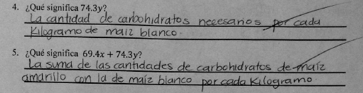 4. ¿Qué significa 74.3y?
La cantidad de carbohidratos necesarios por cada
Kilogramo de maiz blanco.
5. ¿Qué significa 69.4x + 74.3y?
La suma de las cantidades de carbohidratos de maiz
amarillo con la de maiz blanco por cada Kilogramo